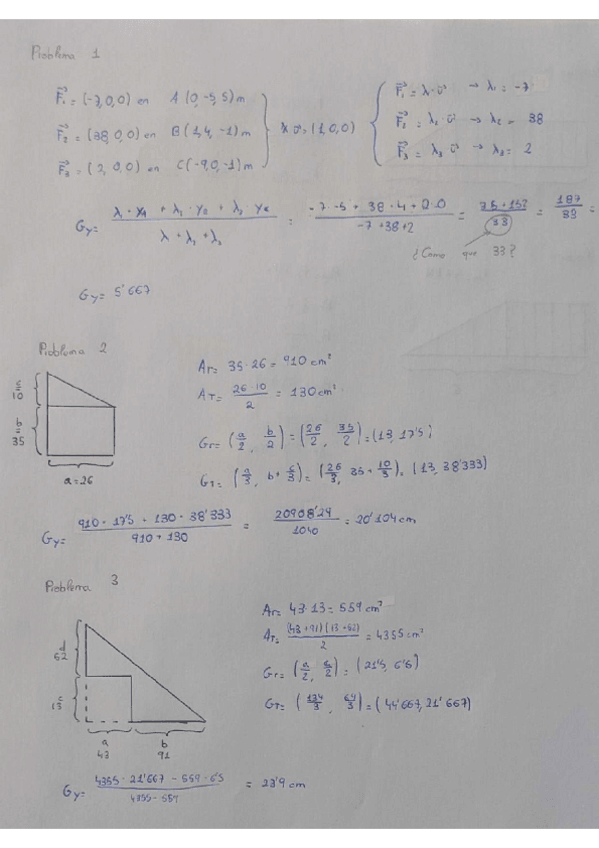 Problema 1
F₁ = (-7,0,0) en A (0,-5,5) m
F₂ = (38,0,0) en B (1,4,-1) m
F₃ = (2,0,0) en C(-9,0,-1) m
(1,0,0)
F₁ = λ·υ → λ₁ = -7
F₂ = λ₂ υ → λ₂ = 38
F₃ = λ₃ υ → λ₃ = 2
Gy= (λ₁·yA + λ₁·yB + λ₃·yC) / (λ + λ₂ + λ₃) = (-7·-5 + 38·4 + 2·0) / (-7+38+2) = (35+152) / 33 = 187/33 =
¿Como que 33?
Gy= 5'667
Problema 2
c = 10
b = 35
a=26
Ar= 35·26 = 910 cm²
AT= (26·10)/2 = 130 cm²
Gr= (a/2, b/2) = (26/2, 35/2) = (13, 17'5)
GT= (a/3, b+c/3) = (26/3, 35+10/3) = (13, 38'333)
Gy= (910·17'5 + 130·38'333) / (910+130) = 20908'29/1040 = 20'104 cm
Problema 3
d 52
c 13
a 43
b 91
Ar= 43·13 = 559 cm²
AT= (43+91)(13+52)/2 = 4355 cm²
Gr= (a/2, c/2) = (21'5, 6'5)
GT= (134/3, 64/3) = (44'667, 21'667)
Gy= (4355·21'667 - 559·6'5) / (4355-559) = 23'9 cm